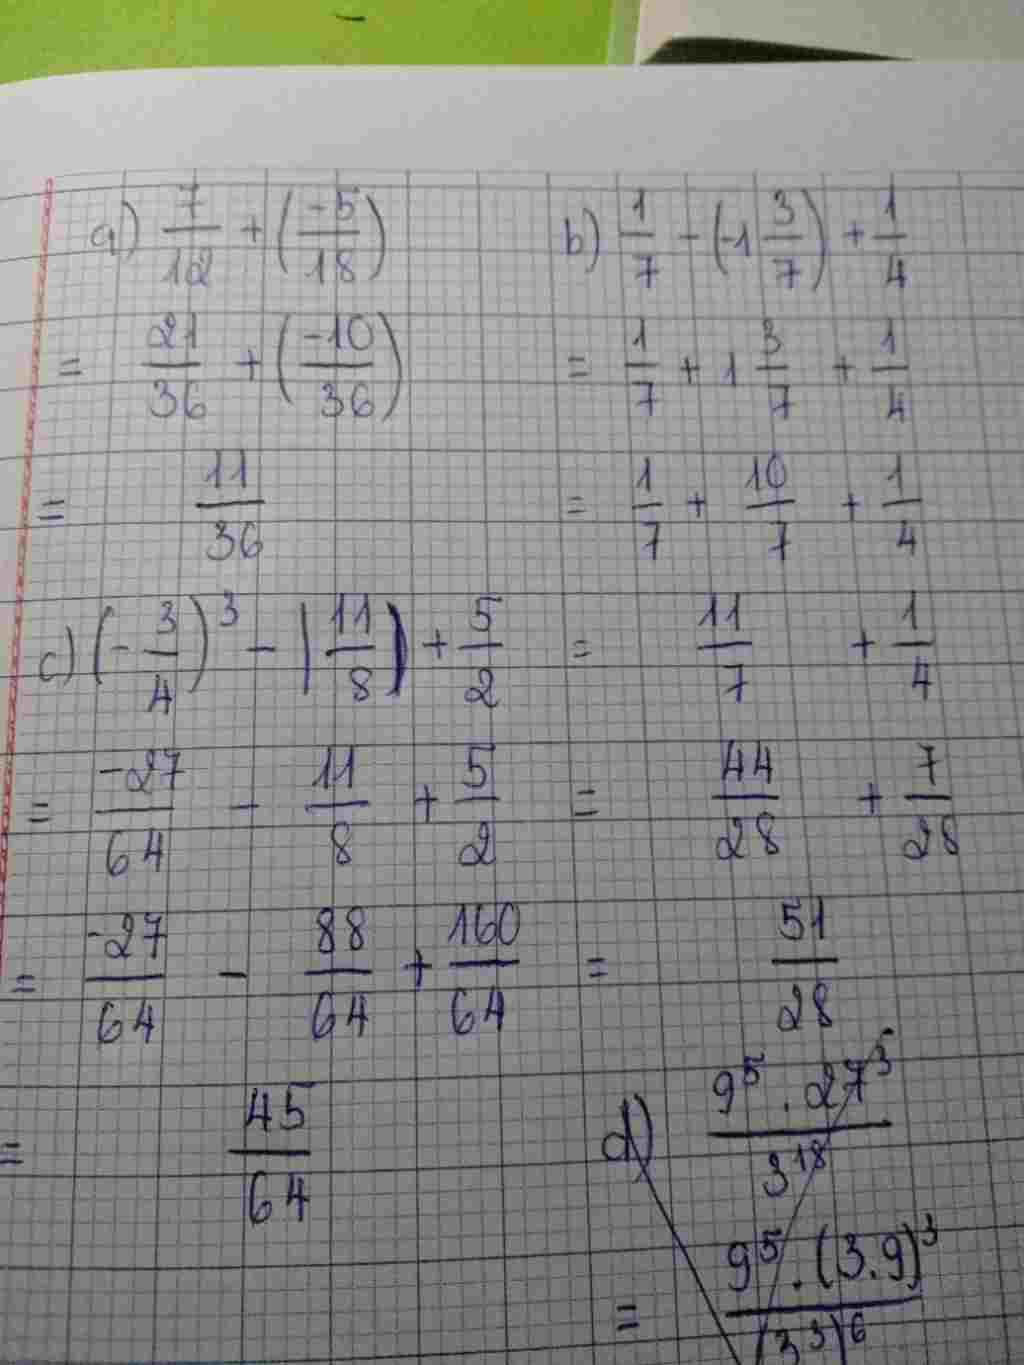 a) 7/12 + (-5/18)
= 21/36 + (-10/36)
= 11/36
b) 1/7 - (-1 3/7) + 1/4
= 1/7 + 1 3/7 + 1/4
= 1/7 + 10/7 + 1/4
= 11/7 + 1/4
= 44/28 + 7/28
= 51/28
c) (-3/4)^3 - |11/8| + 5/2
= -27/64 - 11/8 + 5/2
= -27/64 - 88/64 + 160/64
= 45/64
d) 9^5 . 27^3 / 3^18
= 9^5 . (3.9)^3 / (3^3)^6